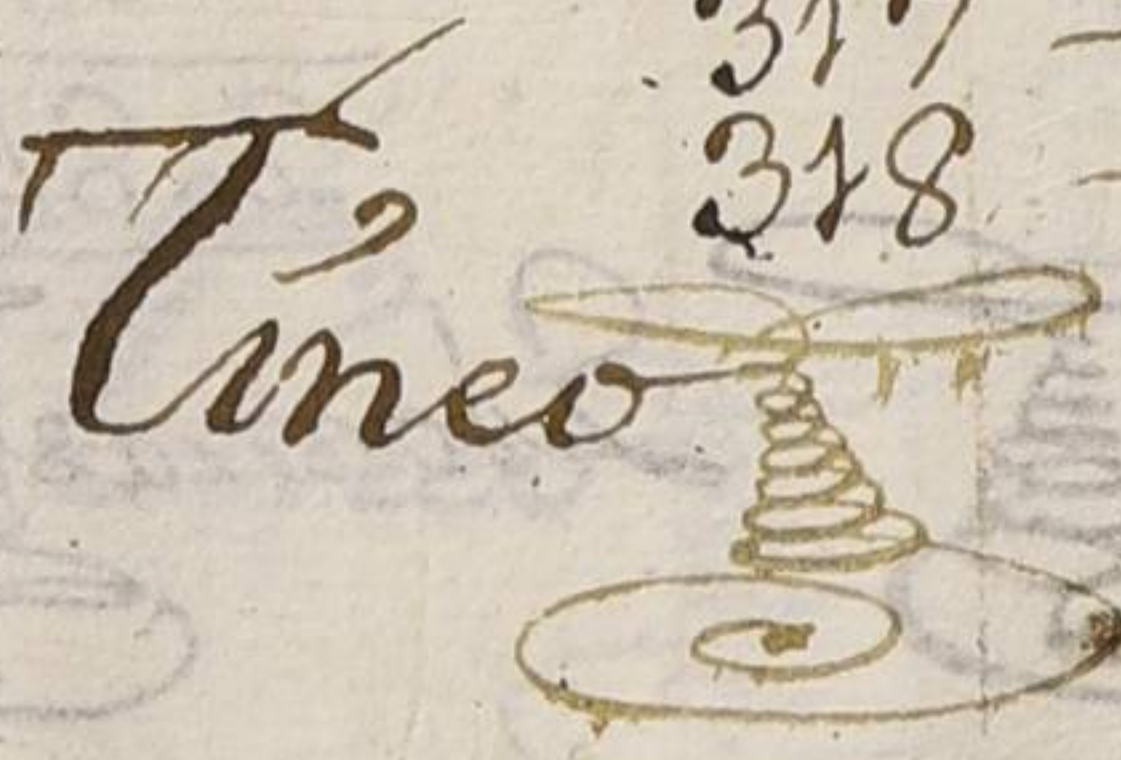 317
318
Tineo